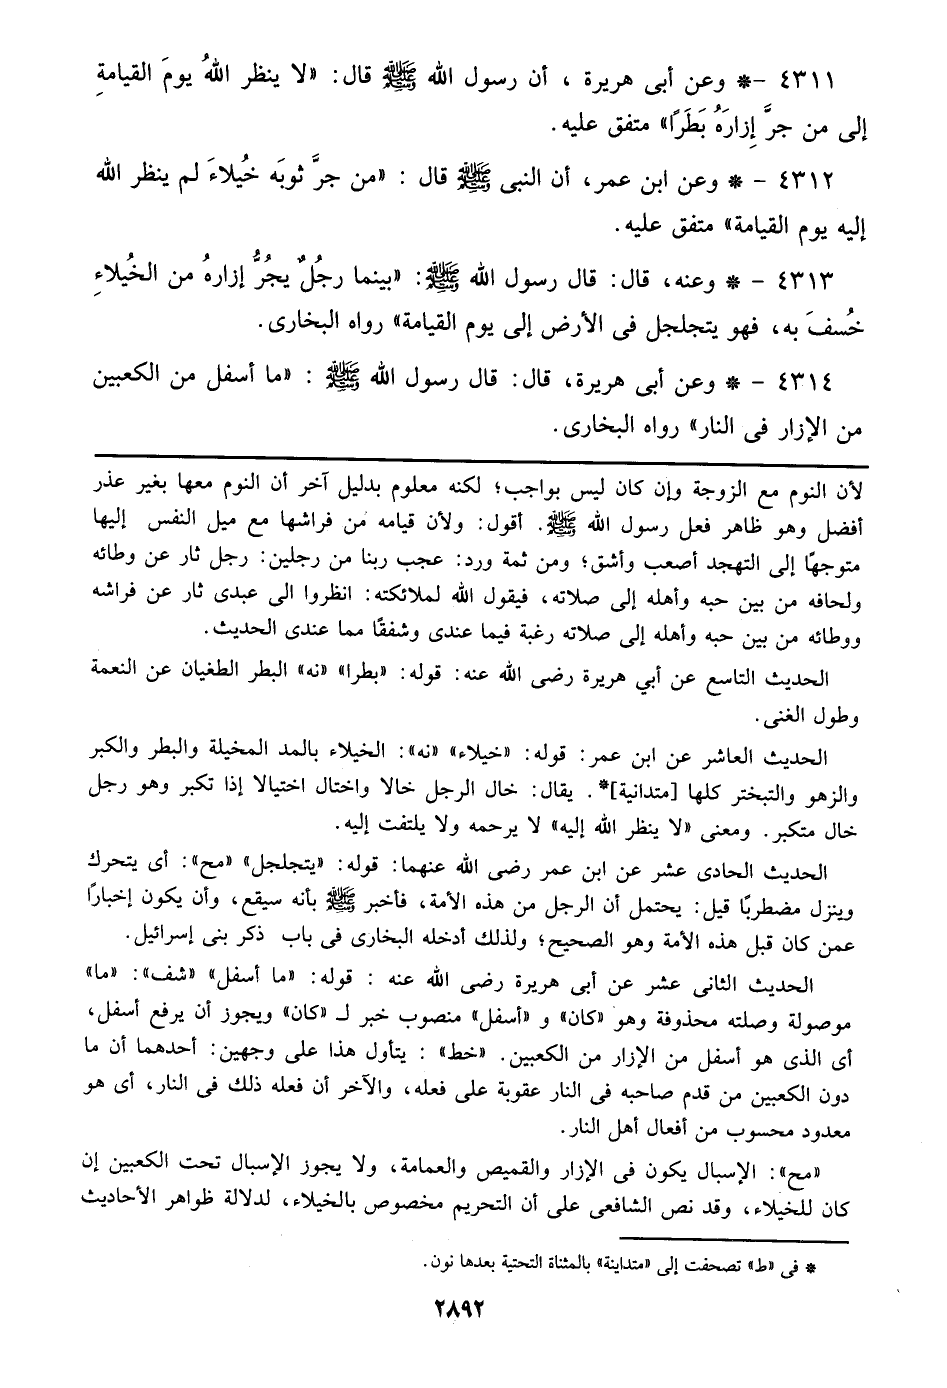 ٤٣١١ -* وعن أبى هريرة ، أن رسول الله ﷺ قال: «لا ينظر اللهُ يومَ القيامةِ
إلى من جرَّ إزارَهُ بَطَرًا» متفق عليه.
٤٣١٢ - * وعن ابن عمر، أن النبى ﷺ قال : «من جرَّ ثوبَه خُيلاءَ لم ينظر الله
إليه يوم القيامة» متفق عليه.
٤٣١٣ - * وعنه، قال: قال رسول الله ﷺ: «بينما رجُلٌ يجُرُّ إزارهُ من الخُيلاءِ
خُسفَ به، فهو يتجلجل فى الأرض إلى يوم القيامة» رواه البخارى.
٤٣١٤ - * وعن أبى هريرة، قال: قال رسول الله ﷺ : «ما أسفل من الكعبين
من الإزار فى النار» رواه البخارى.
لأن النوم مع الزوجة وإن كان ليس بواجب؛ لكنه معلوم بدليل آخر أن النوم معها بغير عذر
أفضل وهو ظاهر فعل رسول الله ﷺ. أقول: ولأن قيامه من فراشها مع ميل النفس إليها
متوجهًا إلى التهجد أصعب وأشق؛ ومن ثمة ورد: عجب ربنا من رجلين: رجل ثار عن وطائه
ولحافه من بين حبه وأهله إلى صلاته، فيقول الله لملائكته: انظروا الى عبدى ثار عن فراشه
ووطائه من بين حبه وأهله إلى صلاته رغبة فيما عندى وشفقًا مما عندى الحديث.
الحديث التاسع عن أبي هريرة رضى الله عنه: قوله: «بطرا» «نه» البطر الطغيان عن النعمة
وطول الغنى.
الحديث العاشر عن ابن عمر: قوله: «خيلاء» «نه»: الخيلاء بالمد المخيلة والبطر والكبر
والزهو والتبختر كلها [متدانية]*. يقال: خال الرجل خالا واختال اختيالا إذا تكبر وهو رجل
خال متكبر. ومعنى «لا ينظر الله إليه» لا يرحمه ولا يلتفت إليه.
الحديث الحادى عشر عن ابن عمر رضى الله عنهما: قوله: «يتجلجل» «مح»: أى يتحرك
وينزل مضطربًا قيل: يحتمل أن الرجل من هذه الأمة، فأخبر ﷺ بأنه سيقع، وأن يكون إخبارًا
عمن كان قبل هذه الأمة وهو الصحيح؛ ولذلك أدخله البخارى فى باب ذكر بنى إسرائيل.
الحديث الثانى عشر عن أبى هريرة رضى الله عنه : قوله: «ما أسفل» «شف»: «ما»
موصولة وصلته محذوفة وهو «كان» و «أسفل» منصوب خبر لـ «كان» ويجوز أن يرفع أسفل،
أى الذى هو أسفل من الإزار من الكعبين. «خط» : يتأول هذا على وجهين: أحدهما أن ما
دون الكعبين من قدم صاحبه فى النار عقوبة على فعله، والآخر أن فعله ذلك فى النار، أى هو
معدود محسوب من أفعال أهل النار.
«مح»: الإسبال يكون فى الإزار والقميص والعمامة، ولا يجوز الإسبال تحت الكعبين إن
كان للخيلاء، وقد نص الشافعى على أن التحريم مخصوص بالخيلاء، لدلالة ظواهر الأحاديث
* فى «ط» تصحفت إلى «متداينة» بالمثناة التحتية بعدها نون.
٢٨٩٢